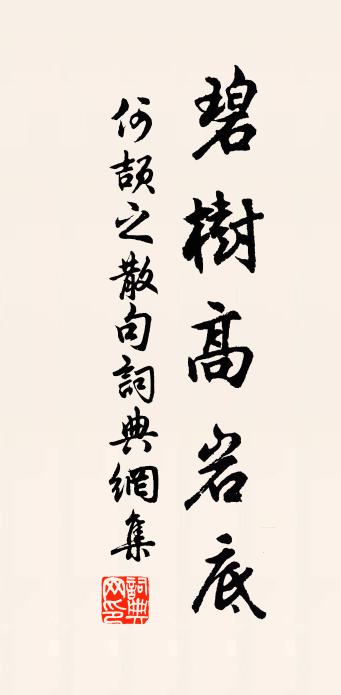 碧樹高岩底
何頡之散句詞典網集
詞典网印